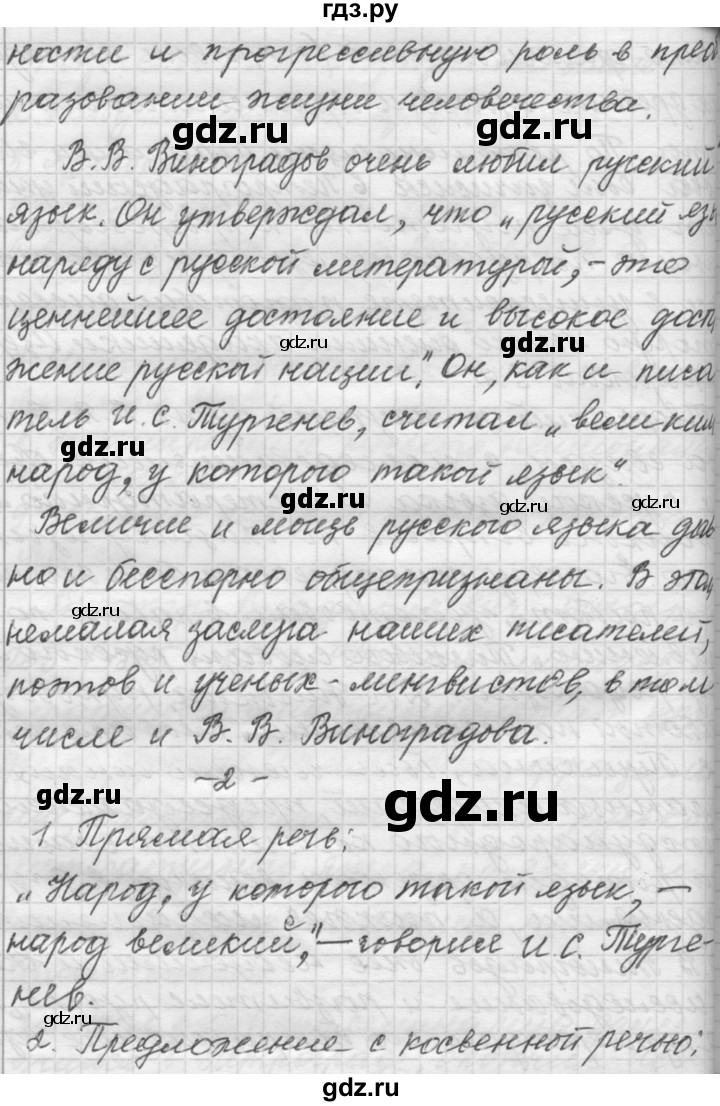 гдз.ру
ности и прогрессивную роль в преоб
разовании жизни человечества.
gdz.ru gdz.ru
В. В. Виноградов очень любил русский
язык. Он утверждал, что „русский яз
gdz.ru gdz.ru
наряду с русской литературый, - это
ценнейшее достояние и высокое дост
gdz.ru gdz.ru
жение русской нации." Он, как и писа
тель И. С. Тургенев, считал „великим
gdz.ru
народ, у которого такой язык".
gdz.ru gdz.ru gdz.ru
Величие и мощь русского языка дав
но и бесспорно общепризнаны. В этом
gdz.ru
немалая заслуга наших писателей,
поэтов и ученых - лингвистов, в том
числе и В. В. Виноградова.
- 2 -
gdz.ru gdz.ru
1 Прямая речь:
„Народ, у которого такой язык, —
народ великий," — говорил И. С. Турге-
нев.
gdz.ru gdz.ru
2. Предложение с косвенной речью:
gdz.ru